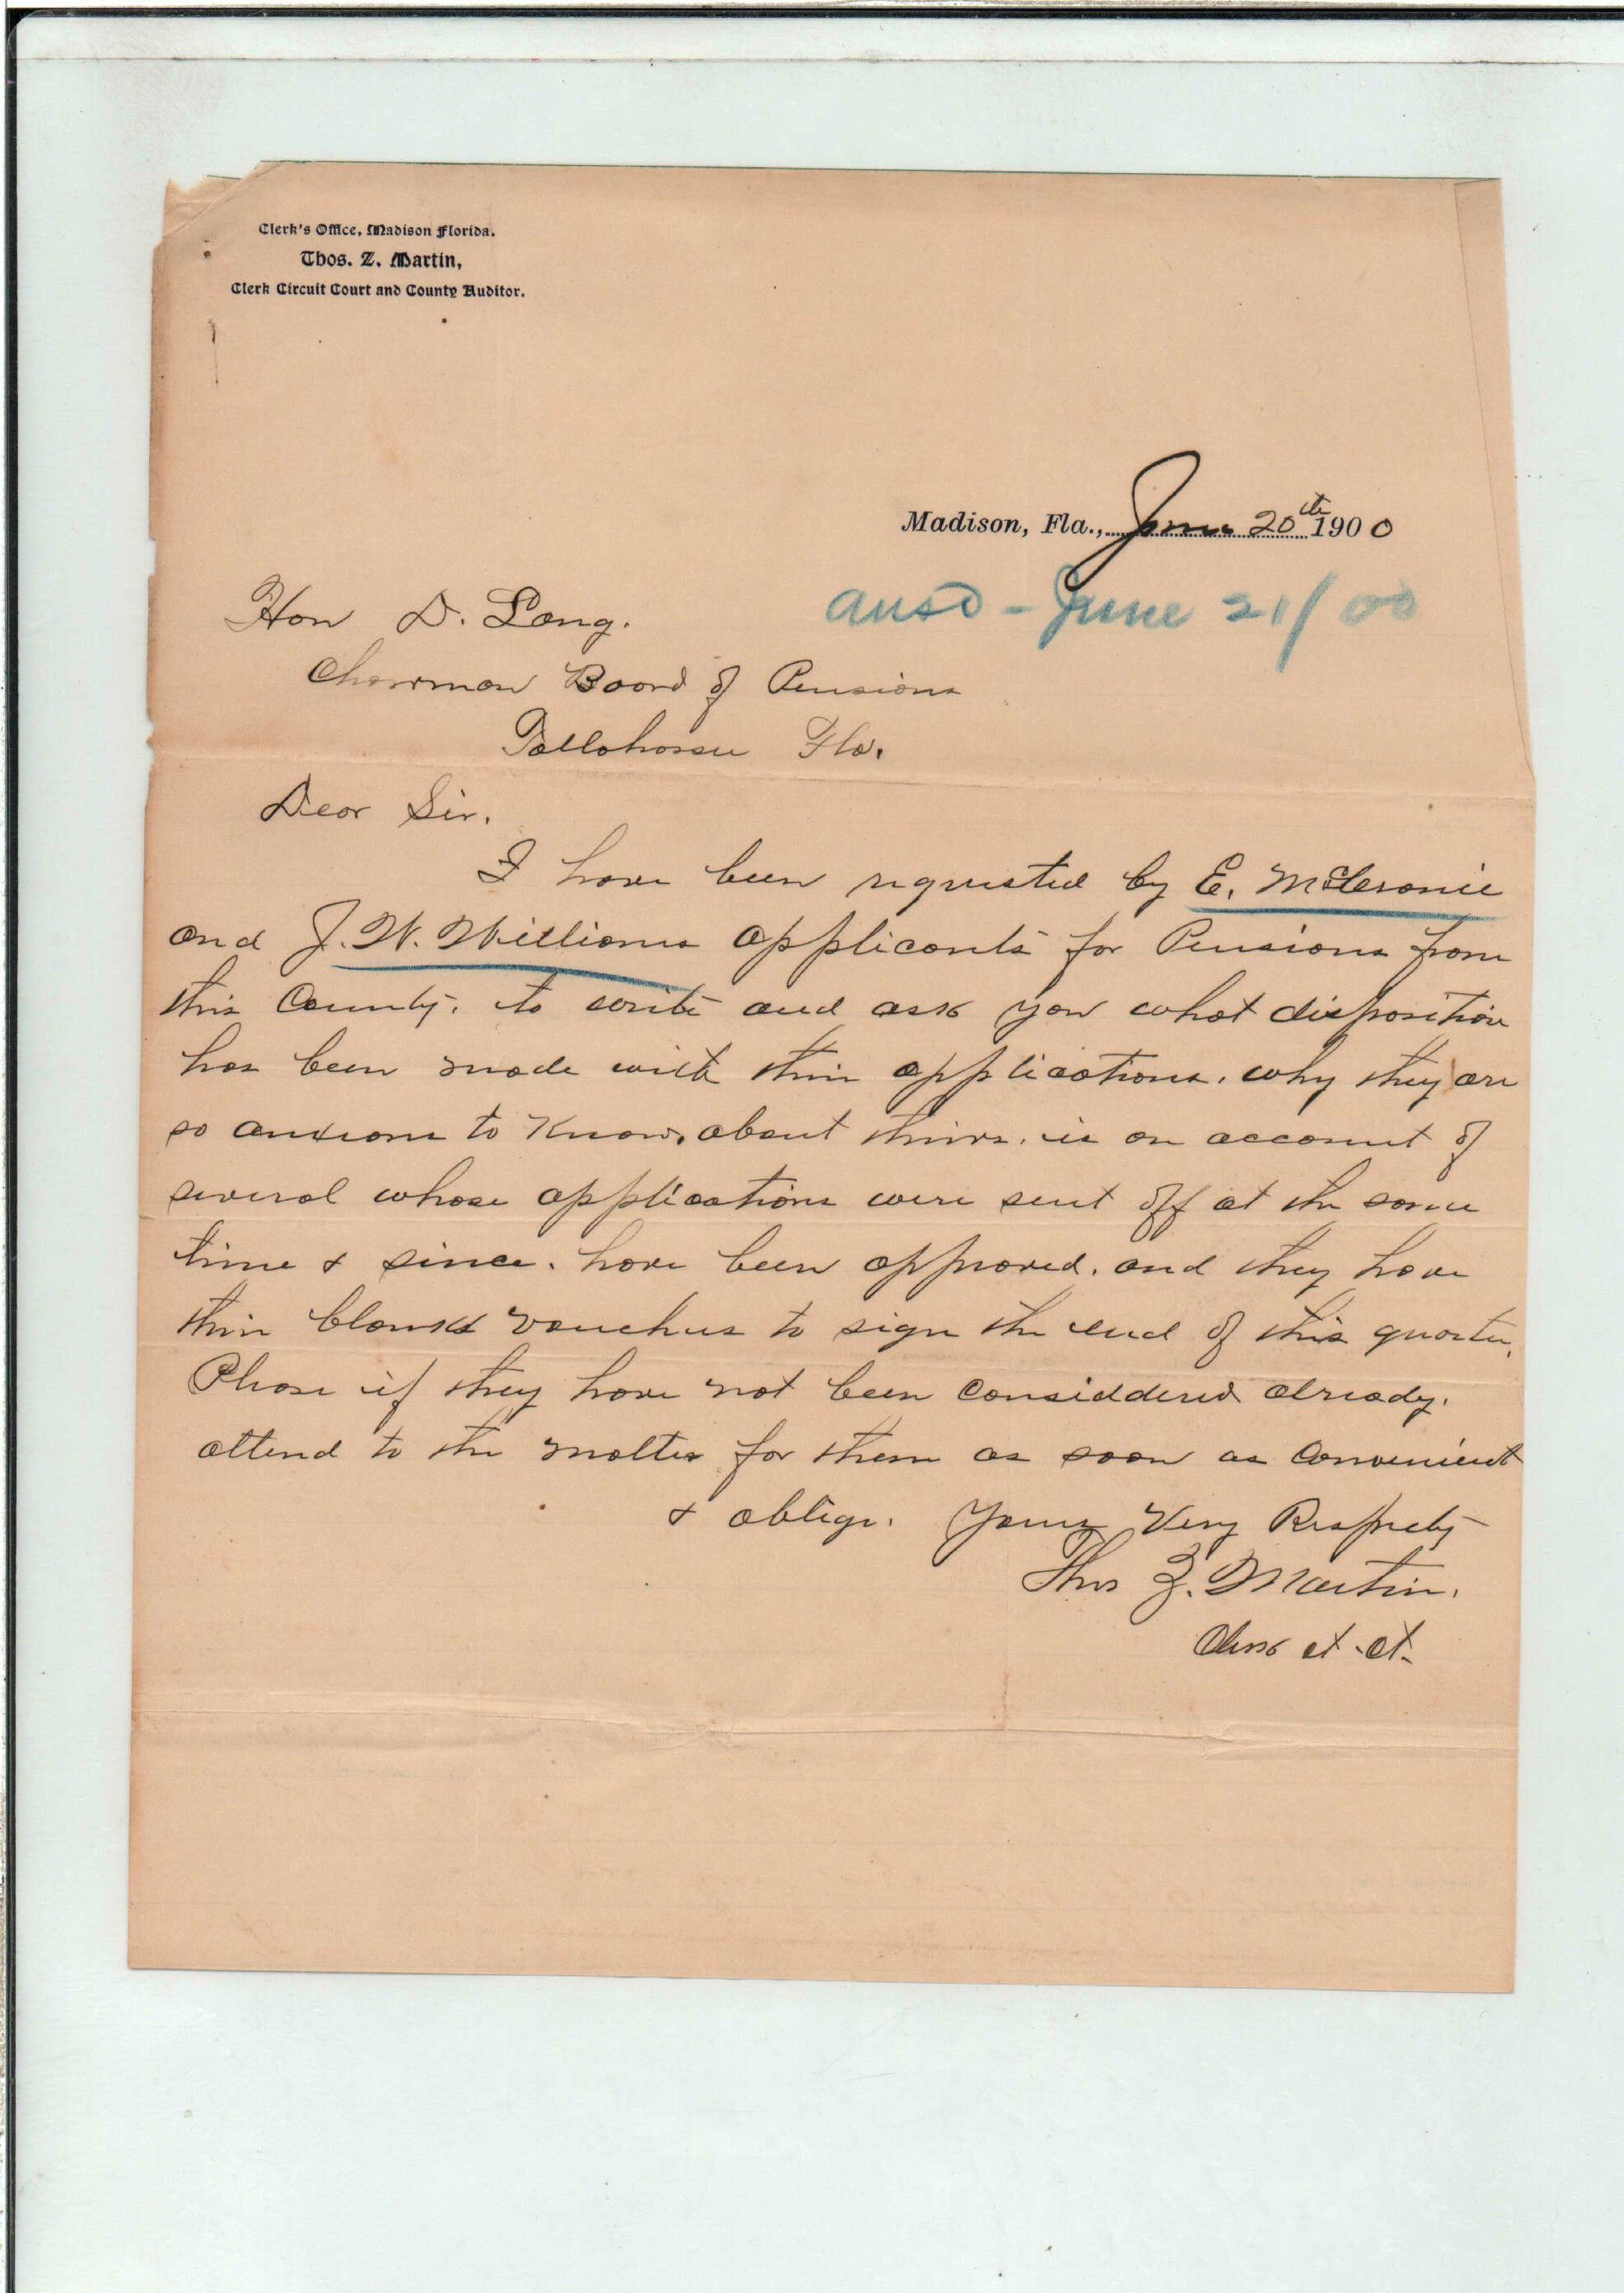 Clerk's Office, Madison Florida.
Thos. Z. Martin,
Clerk Circuit Court and County Auditor.
Madison, Fla., June 20th 1900
ansd - June 21/00
Hon D. Long.
Chairman Board of Pensions
Tallahassee Fla.
Dear Sir.
I have been requested by E.
and J. W. Williams applicants for Pensions from
this County. to write and ask you what disposition
has been made with their applications. why they are
so anxious to Know, about theirs. is on account of
several whose applications were sent off at the same
time & since. have been approved. and they have
their blanks vouchers to sign the end of this quarter.
Please if they have not been considdered already.
attend to the matter for them as soon as Convenient
& oblige. Yours Very Respectly
Thos Z. Martin.
Clerk ct. ct.